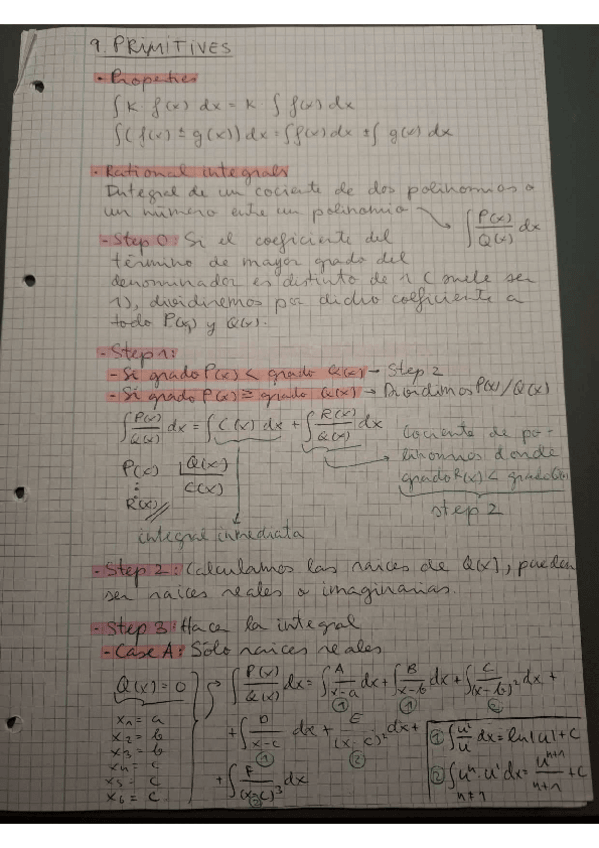 9. PRIMITIVES
- Properties
∫ K · f(x) dx = K ∫ f(x) dx
∫ (f(x) ± g(x)) dx = ∫ f(x) dx ± ∫ g(x) dx
- Rational integrals
Integral de un cociente de dos polinomios o
un número entre un polinomio → ∫ P(x)/Q(x) dx
- Step 0: Si el coeficiente del
término de mayor grado del
denominador es distinto de 1 (suele ser
1), dividiremos por dicho coeficiente a
todo P(x) y Q(x).
- Step 1:
- Si grado P(x) < grado Q(x) → Step 2
- Si grado P(x) ≥ grado Q(x) → Dividimos P(x)/Q(x)
∫ P(x)/Q(x) dx = ∫ C(x) dx + ∫ R(x)/Q(x) dx
Cociente de po-
linomios donde
grado R(x) < grado Q(x)
step 2
P(x) | Q(x)
⋮ C(x)
R(x) //
integral inmediata
- Step 2: Calculamos las raíces de Q(x), pueden
ser raíces reales o imaginarias.
- Step 3: Hacer la integral
- Case A: Sólo raíces reales
Q(x) = 0 → ∫ P(x)/Q(x) dx = ∫ A/(x-a) dx + ∫ B/(x-b) dx + ∫ C/(x-b)² dx +
① ① ②
x1 = a
x2 = b
x3 = b
x4 = c
x5 = c
x6 = c
+ ∫ D/(x-c) dx + E/(x-c)² dx +
① ②
+ ∫ F/(x-c)³ dx
②
① ∫ u'/u dx = ln|u| + C
② ∫ uⁿ · u' dx = uⁿ⁺¹/(n+1) + C